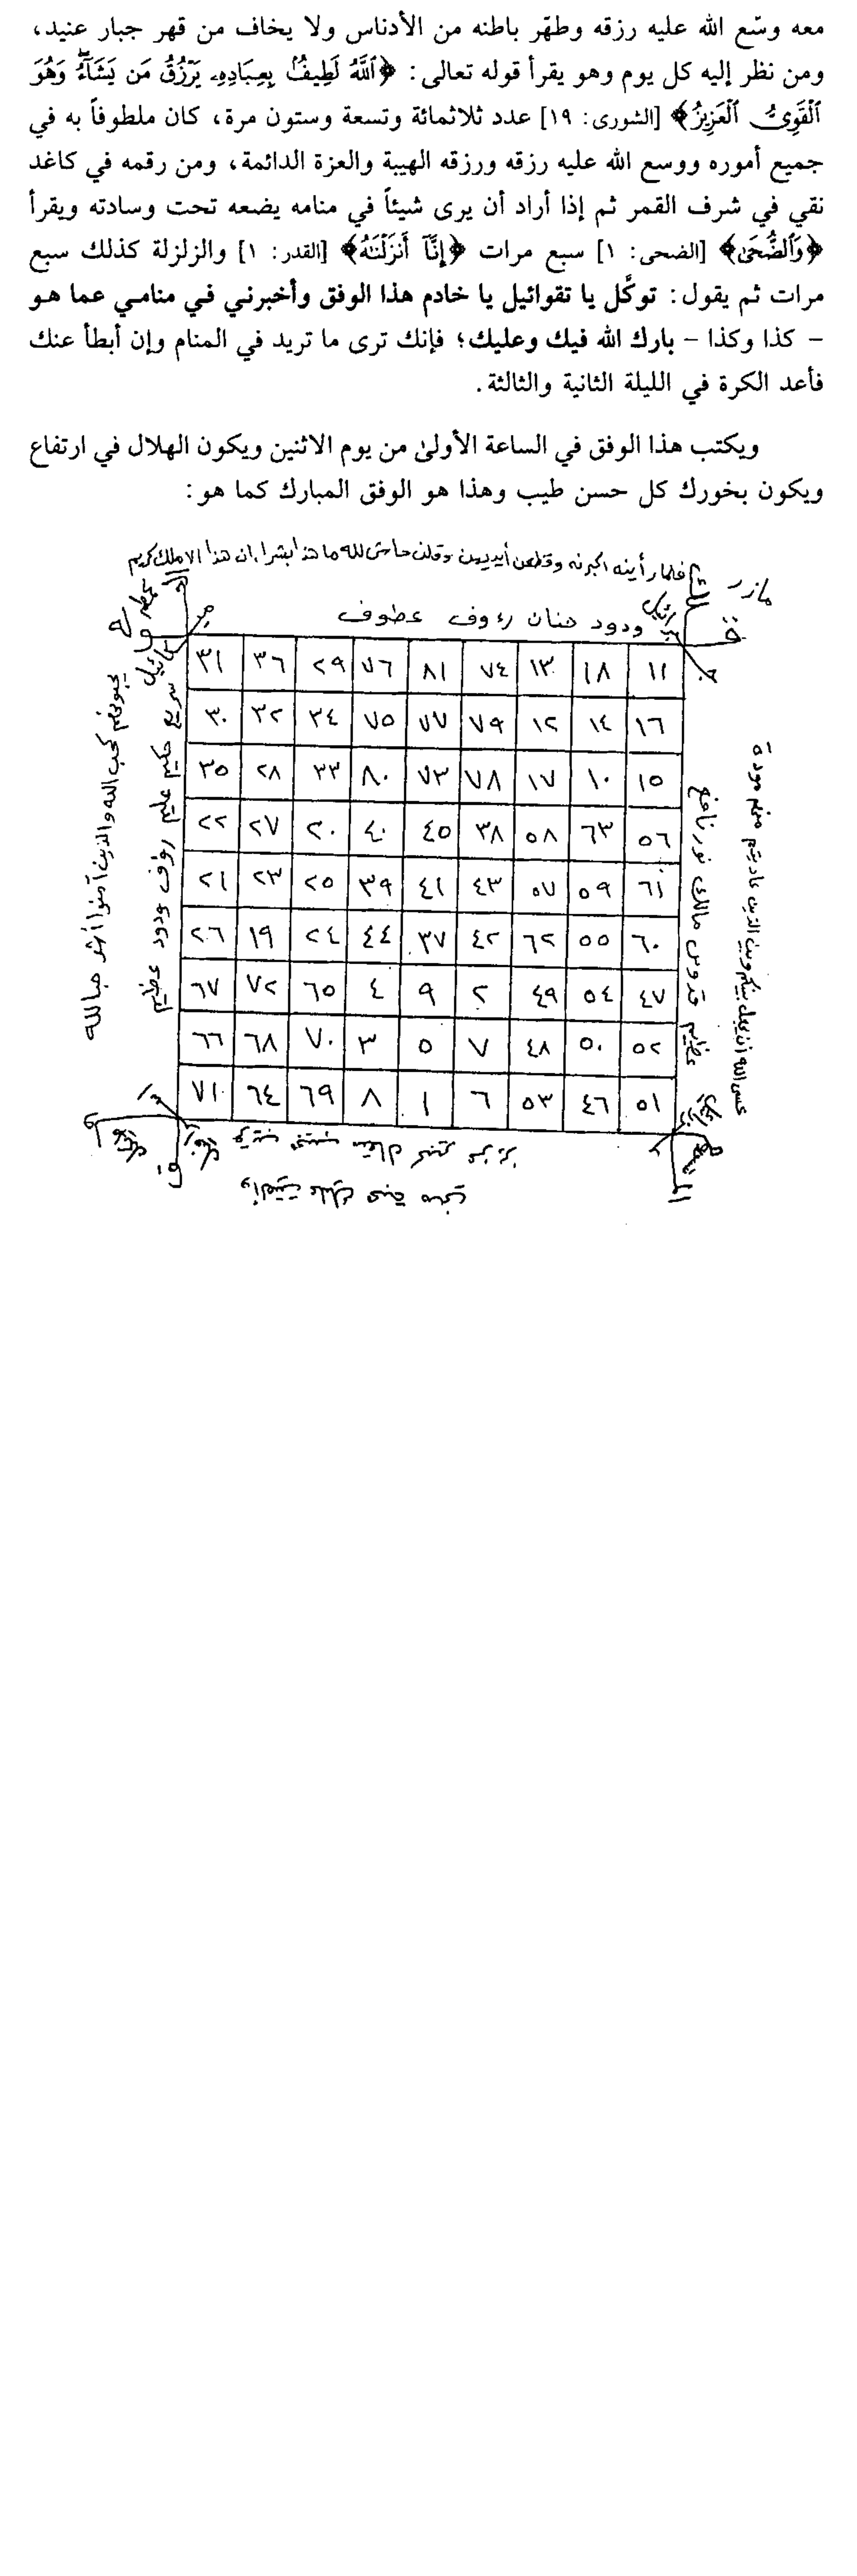 معه وسّع الله عليه رزقه وطهّر باطنه من الأدناس ولا يخاف من قهر جبار عنيد،
ومن نظر إليه كل يوم وهو يقرأ قوله تعالى: ﴿ٱللَّهُ لَطِيفٌۢ بِعِبَادِهِۦ يَرۡزُقُ مَن يَشَآءُۖ وَهُوَ
ٱلۡقَوِيُّ ٱلۡعَزِيزُ﴾ [الشورى: ١٩] عدد ثلاثمائة وتسعة وستون مرة، كان ملطوفاً به في
جميع أموره ووسع الله عليه رزقه ورزقه الهيبة والعزة الدائمة، ومن رقمه في كاغد
نقي في شرف القمر ثم إذا أراد أن يرى شيئاً في منامه يضعه تحت وسادته ويقرأ
﴿وَٱلضُّحَىٰ﴾ [الضحى: ١] سبع مرات ﴿إِنَّآ أَنزَلۡنَٰهُ﴾ [القدر: ١] والزلزلة كذلك سبع
مرات ثم يقول: توكَّل يا تقوائيل يا خادم هذا الوفق وأخبرني في منامي عما هو
- كذا وكذا - بارك الله فيك وعليك؛ فإنك ترى ما تريد في المنام وإن أبطأ عنك
فأعد الكرة في الليلة الثانية والثالثة.
ويكتب هذا الوفق في الساعة الأولىٰ من يوم الاثنين ويكون الهلال في ارتفاع
ويكون بخورك كل حسن طيب وهذا هو الوفق المبارك كما هو:
فلما رأينه اكبرنه وقطعن أيديهن وقلن حاش لله ما هذا بشرا ان هذا الا ملك كريم
مازر
ودود حنان رءوف عطوف
٣١ ٣٦ ٢٩ ٧٦ ٨١ ٧٤ ١٣ ١٨ ١١
٣٠ ٣٢ ٣٤ ٧٥ ٧٧ ٧٩ ١٢ ١٤ ١٦
٣٥ ٢٨ ٣٣ ٨٠ ٧٣ ٧٨ ١٧ ١٠ ١٥
٢٢ ٢٧ ٢٠ ٤٠ ٤٥ ٣٨ ٥٨ ٦٣ ٥٦
٢١ ٢٣ ٢٥ ٣٩ ٤١ ٤٣ ٥٧ ٥٩ ٦١
٢٦ ١٩ ٢٤ ٤٤ ٣٧ ٤٢ ٦٢ ٥٥ ٦٠
٦٧ ٧٢ ٦٥ ٤ ٩ ٢ ٤٩ ٥٤ ٤٧
٦٦ ٦٨ ٧٠ ٣ ٥ ٧ ٤٨ ٥٠ ٥٢
٧١ ٦٤ ٦٩ ٨ ١ ٦ ٥٣ ٤٦ ٥١
عظيم قدوس مالك نور نافع
عسى الله أن يجعل بينكم وبين الذين عاديتم منهم مودة
سريع حكيم عليم رؤف ودود عظيم
يحبونهم كحب الله والذين آمنوا أشد حبا لله
وألقيت عليك محبة مني